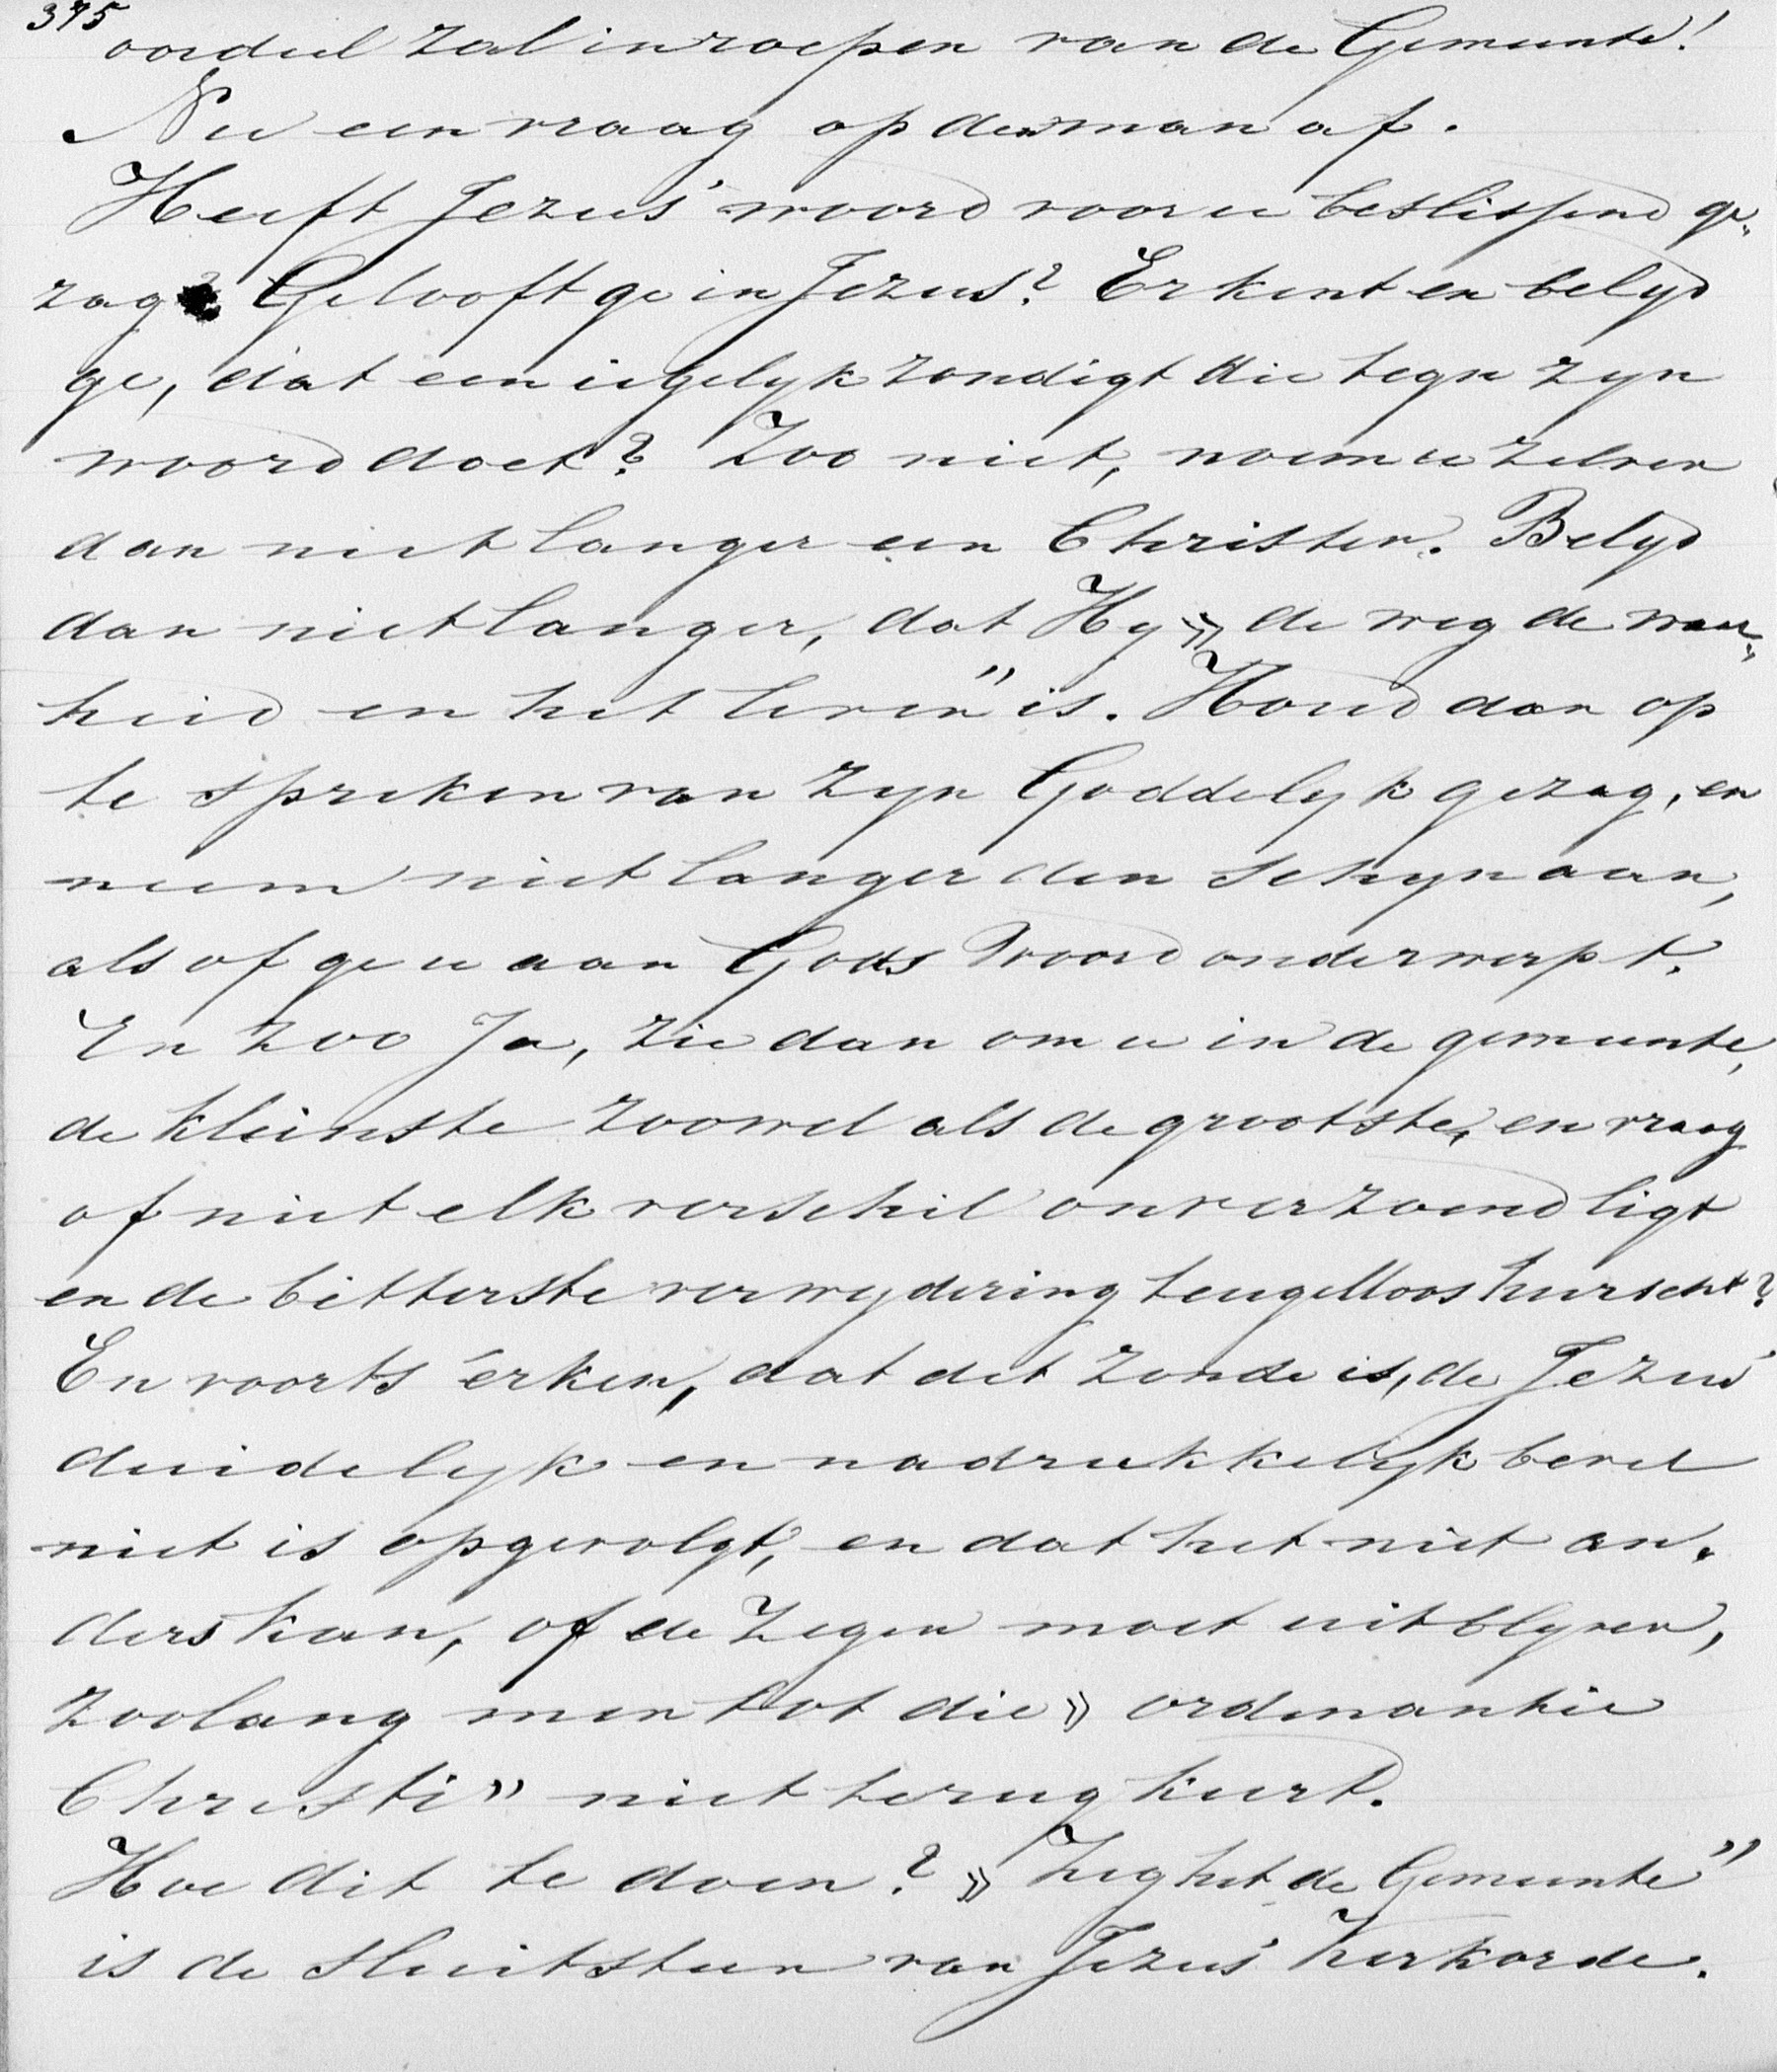 375
oordeel zal inroepen van de Gemeente!
Nu een vraag op den man af.
Heeft Jezus' woord voor u beslissend ge„
zag? Gelooft ge in Jezus? Erkent en belyd
ge, dat een iegelyk zondigt die tegen zyn
woord doet? Zoo niet, noem u zelven
dan niet langer een Christen. Belyd
dan niet langer, dat Hy » de weg de waar„
heid en het leven" is. Houd dan op
te spreken van zyn Goddelyk gezag, en
neem niet langer den schyn aan,
als of ge u aan Gods Woord onderwerpt.
En zoo Ja, zie dan om u in de gemeente,
de kleinste zoowel als de grootste, en vraag
of niet elk verschil onverzoend ligt
en de bitterste verwydering teugelloos heerscht?
En voorts erken, dat dit zonde is, de Jezus'
duidelyk en nadrukkelyk bevel
niet is opgevolgt, en dat het niet an„
ders kan, of de Zegen moet uitblyven,
zoolang men tot die » ordinantie
Christi" niet terugkeert.
Hoe dit te doen? » Zeg het de Gemeente"
is de sluitsteen van Jezus' Kerkorde.